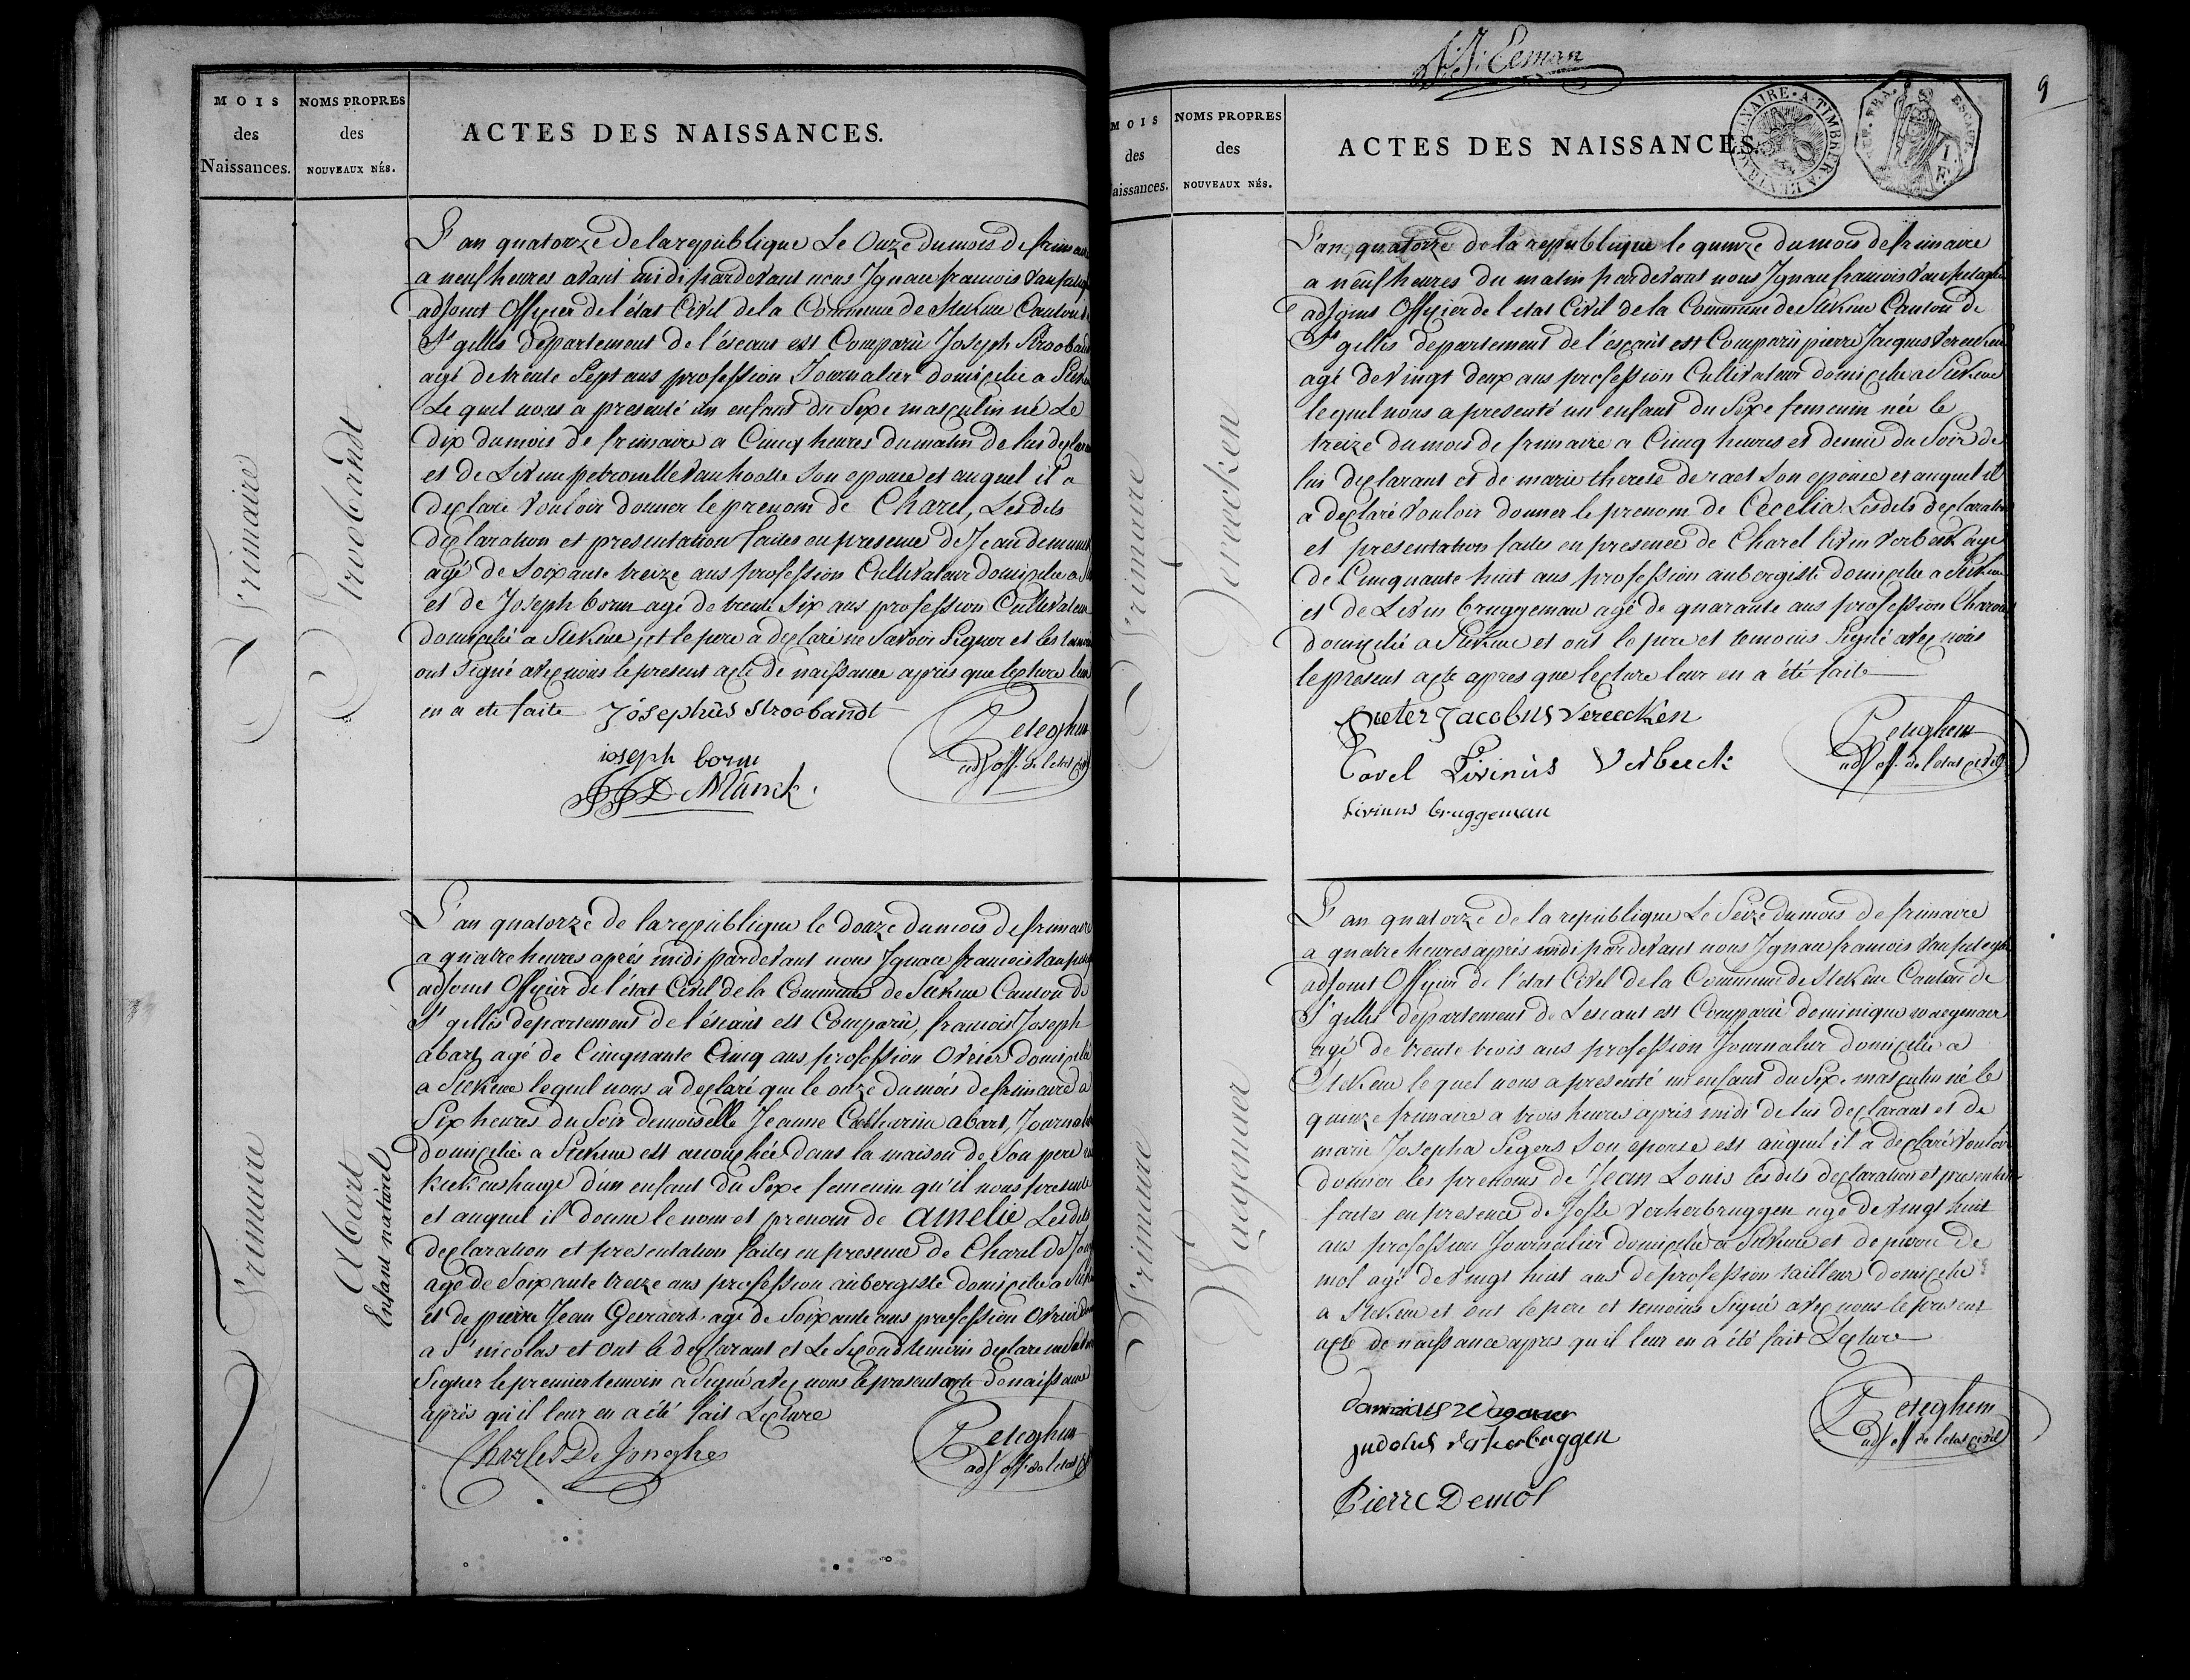 MOIS
des
Naissances.
NOMS PROPRES
des
NOUVEAUX NÉS.
ACTES DES NAISSANCES.
Frimaire
Stroobandt
L'an quatorze de la republique Le Onze du mois de frimaire
a neuf heures avant midi pardevant nous Ignace francois Van
adjoint Officier de l'état Civil de la Commune de Stekene Canton de
St gilles departement de l'éscaut est Comparü Joseph Stroobandt
agé de trente Sept ans profession Journalier domicilié a Stekene
Le quel nous a presenté un enfant du Sexe masculin né Le
dix du mois de frimaire a Cincq heures du matin de lui declarant
et de Livine petronille Vanhoolle Son epouse et auquel il a
declaré Vouloir donner le prenom de Charel, Lesdits
declaration et presentation faites en presence de Jean demunck
agé de Soixante treize ans profession Cultivateur domicilié a
et de Joseph born agé de trente Six ans profession Cultivateur
domicilié a Stekene, et le pere a declaré ne Savoir Signer et les temoins
ont Signé avec nous le present acte de naissance aprés que lecture leur
en a eté faite
Jósephüs Stroobandt
ioseph born
JJ D Münck.
Peteghem
adj off. de l'etat civil
Frimaire
Abart
Enfant natürel
L'an quatorze de la republique le douze du mois de frimaire
a quatre heures aprés midi pardevant nous Ignace francois Van
adjoint Officier de l'état Civil de la Commune de Stekene Canton de
St gilles departement de l'éscaüt est Comparü, francois Joseph
abart, agé de Cinquante Cincq ans profession Ovrier domicilié
a Stekene lequel nous a declaré que le onze du mois de frimaire a
Six heures du Soir demoiselle Jeanne Catherine abart, Journaliere
domicilié a Stekene est accouchée dans la maison de Son pere
d'un enfant du Sexe femenin qu'il nous presente
et auquel il donne le nom et prenom de Amelie Lesdits
declaration et presentation faites en presence de Charel de Jonghe
agé de Soixante treize ans profession aubergiste domicilié a Stekene
et de pierre Jean Geeraert agé de Soixante ans profession Ovrier
a St nicolas et ont le declarant et Le Second temoin declaré ne Savoir
Signer le premier temoin a Signé avec nous le present acte de naissance
aprés qu'il leur en a été fait Lecture
Charles De Jonghe
Peteghem
adj off. de l'etat civil
Eeman
9
MOIS
des
aissances.
NOMS PROPRES
des
NOUVEAUX NÉS.
ACTES DES NAISSANCES.
Frimaire
Vereecken
L'an quatorze de la republique le quinze du mois de frimaire
a neuf heures du matin pardevant nous Ignace francois Van peteghem
adjoint Officier de l'etat Civil de la Commune de Stekene Canton de
St gilles departement de l'éscaüt est Comparü pierre Jacques Vereecken
agé de Vingt deux ans profession Cultivateur domicilié a Stekene
lequel nous a presenté un enfant du Sexe femenin née le
treize du mois de frimaire a Cincq heures et demie du Soir de
lui declarant et de marie therese de raet Son epouse et auquel il
a declaré Vouloir donner le prenom de Cecelia Lesdits declaration
et presentation faites en presence de Charel livin Verbeeck agé
de Cinquante huit ans profession aubergiste domicilié a Stekene
et de Livin bruggeman agé de quarante ans profession Charon
domicilié a Stekene et ont le pere et temoins Signé avec nous
le present acte apres que lecture leur en a été faite
Pieter Jacobus Vereecken
Carel Livinus Verbeeck
Livinus bruggeman
Peteghem
adj off. de l'etat civil
Frimaire
Waegenaer
L'an quatorze de la republique Le Seize du mois de frimaire
a quatre heures aprés midi pardevant nous Ignace francois Van peteghem
adjoint Officier de l'état Civel de la Commune de Stekene Canton de
St gilles departement de Lescaut est Comparü dominique waegenaer
agé de trente trois ans profession Journalier domicilié a
Stekene le quel nous a presenté un enfant du Sexe masculin né le
quinze frimaire a trois heures aprés midi de lui declarant et de
marie Josepha Segers Son epouse est auquel il a declaré Vouloir
donner les prenoms de Jean Louis Lesdits declaration et presentation
faites en presence de Josse Verherbruggen agé de Vingt huit
ans profession Journalier domicilié a Stekene et de pierre de
mol agé de Vingt huit ans de profession tailleur domicilié
a Stekene et ont le pere et temoins Signé avec nous le present
acte de naissance apres qu'il leur en a été fait Lecture
judocus Verherbruggen
Pierre Demol
Peteghem
adj off de l'etat civil